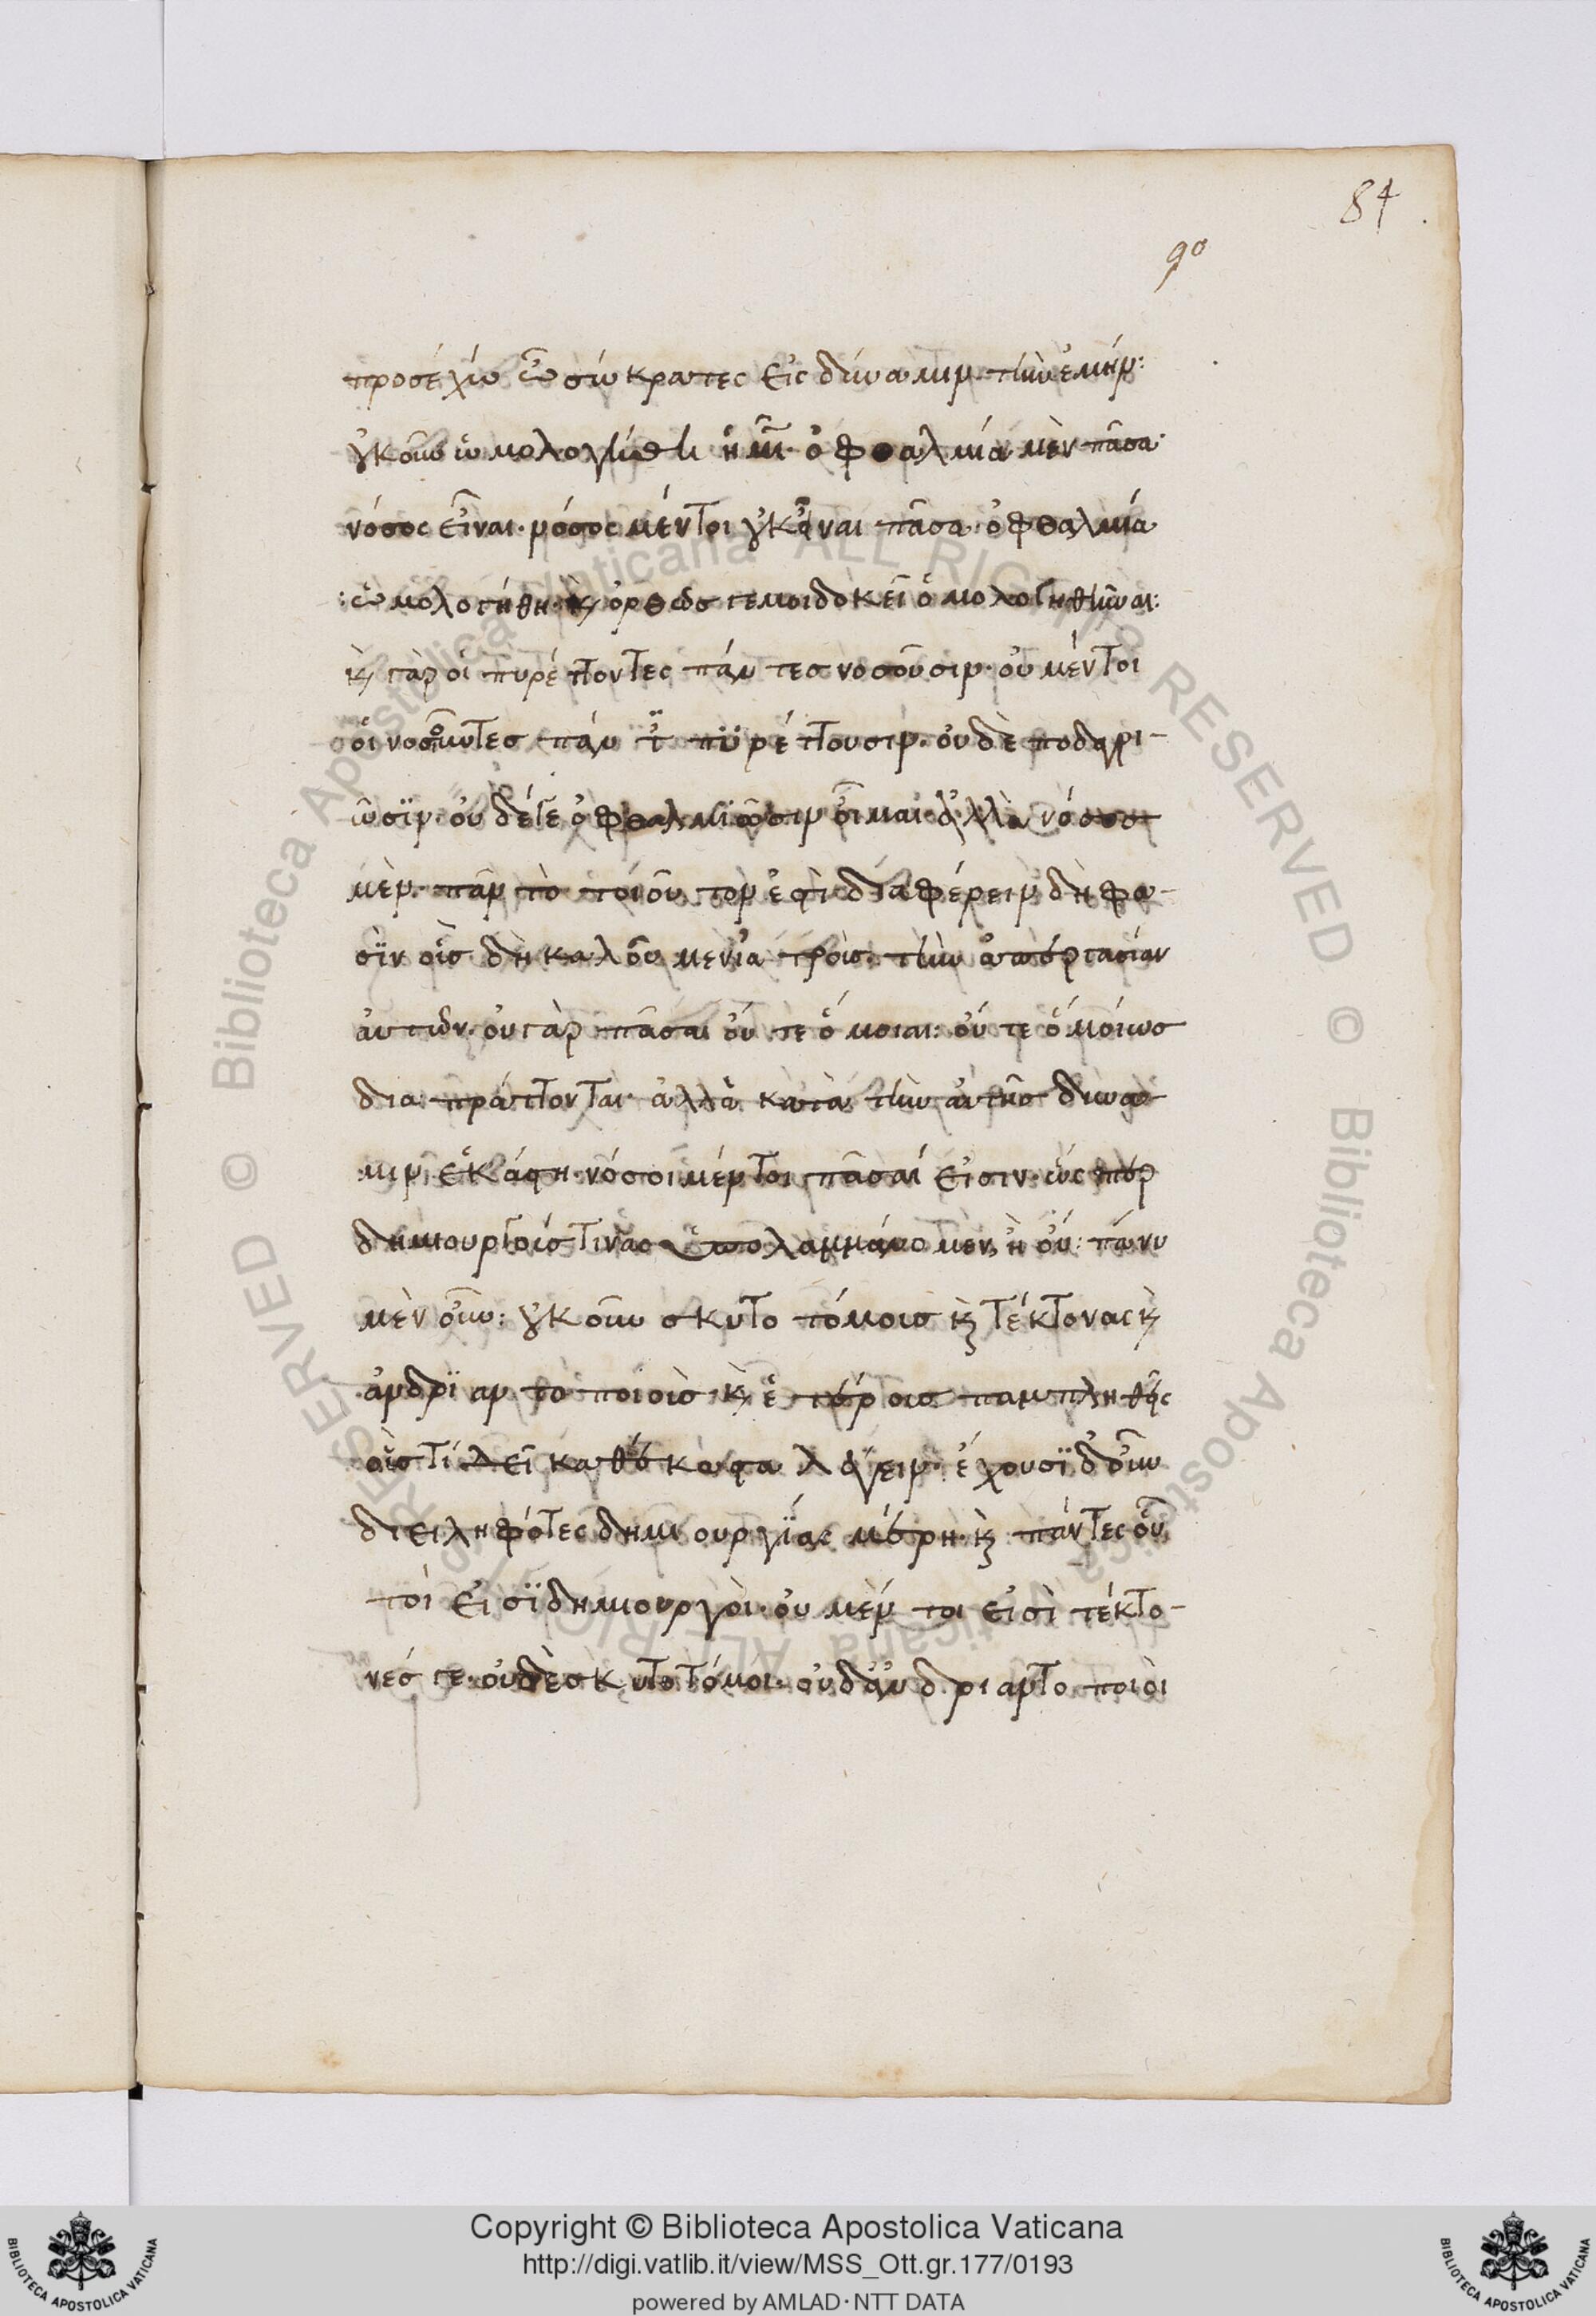 84
90
προσέχω ὦ σώκρατες εἰς δύναμιν τὴν ἐμήν:
οὐκοῦν ὡμολογήθη ἡμῖν· ὀφθαλμία μὲν πᾶσα
νόσος εἶναι· νόσος μέντοι οὐκ εἶναι πᾶσα ὀφθαλμία
:ὡμολογήθη· καὶ ὀρθῶς γέ μοι δοκεῖ ὁμολογηθῆναι:
καὶ γὰρ οἱ πυρέττοντες πάντες νοσοῦσιν· οὐ μέντοι
οἱ νοσοῦντες πάντες πυρέττουσιν· οὐδὲ ποδαγρι-
ῶσιν· οὐδέ γε ὀφθαλμιῶσιν οἶμαι· ἀλλὰ νόσος
μὲν πᾶν τὸ τοιοῦτον ἐστὶ· διαφέρειν δὴ φα-
σὶν οἷς δὴ καλοῦμεν ἰατροὶς· τὴν ἀπεργασίαν
αὐτῶν· οὐ γὰρ πᾶσαι οὔτε ὅμοιαι: οὔτε ὁμοίως
διαπράττονται· ἀλλὰ κατὰ τὴν αὐτῆς δύνα-
μιν ἑκάστη· νόσοι μέντοι πᾶσαί εἰσιν· ὥσπερ
δημιουργοίς τινας ὑπολαμμάνομεν, ἢ οὔ: πάνυ
μὲν οὖν: οὐκοῦν σκυτοτόμοις καὶ τέκτονας καὶ
ἀνδριαντοποιοὶς καὶ ἑτέροις παμπληθεῖς
οἷς τί δεῖ καθέκαστα λέγειν· ἔχουσι δ' οὖν
διειληφότες δημιουργίας μέρη· καὶ πάντες οὗ
τοί εἰσι δημιουργοὶ· οὐ μέν τοι εἰσὶ τέκτο-
νές γε· οὐδὲ σκυτοτόμοι· οὐδ' ἀνδριαντοποιοὶ
Copyright © Biblioteca Apostolica Vaticana
http://digi.vatlib.it/view/MSS_Ott.gr.177/0193
powered by AMLAD·NTT DATA